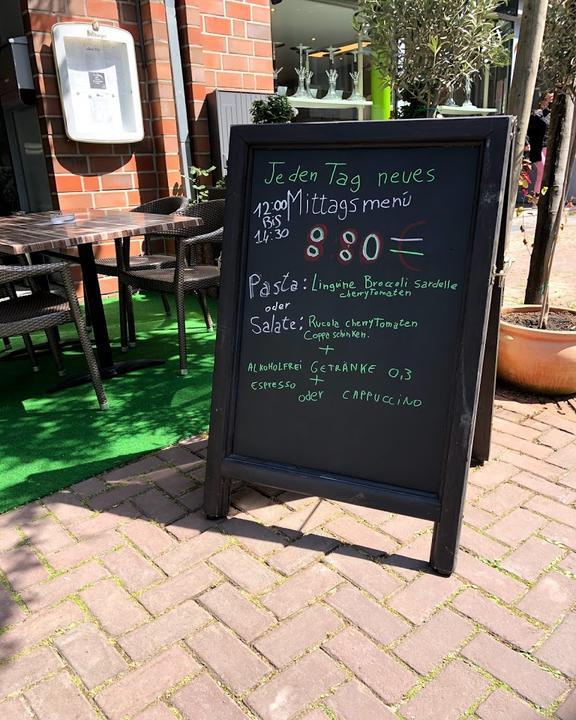 Jeden Tag neues
12:00 Mittagsmenú
Bis
14:30
8 80 €
Pasta: Linguine Broccoli Sardelle
cherryTomaten
oder
Salate: Rucola cherryTomaten
Coppa schinken.
+
ALKOHOLFREI GETRÄNKE 0,3
+
ESPRESSO oder CAPPUCCINO